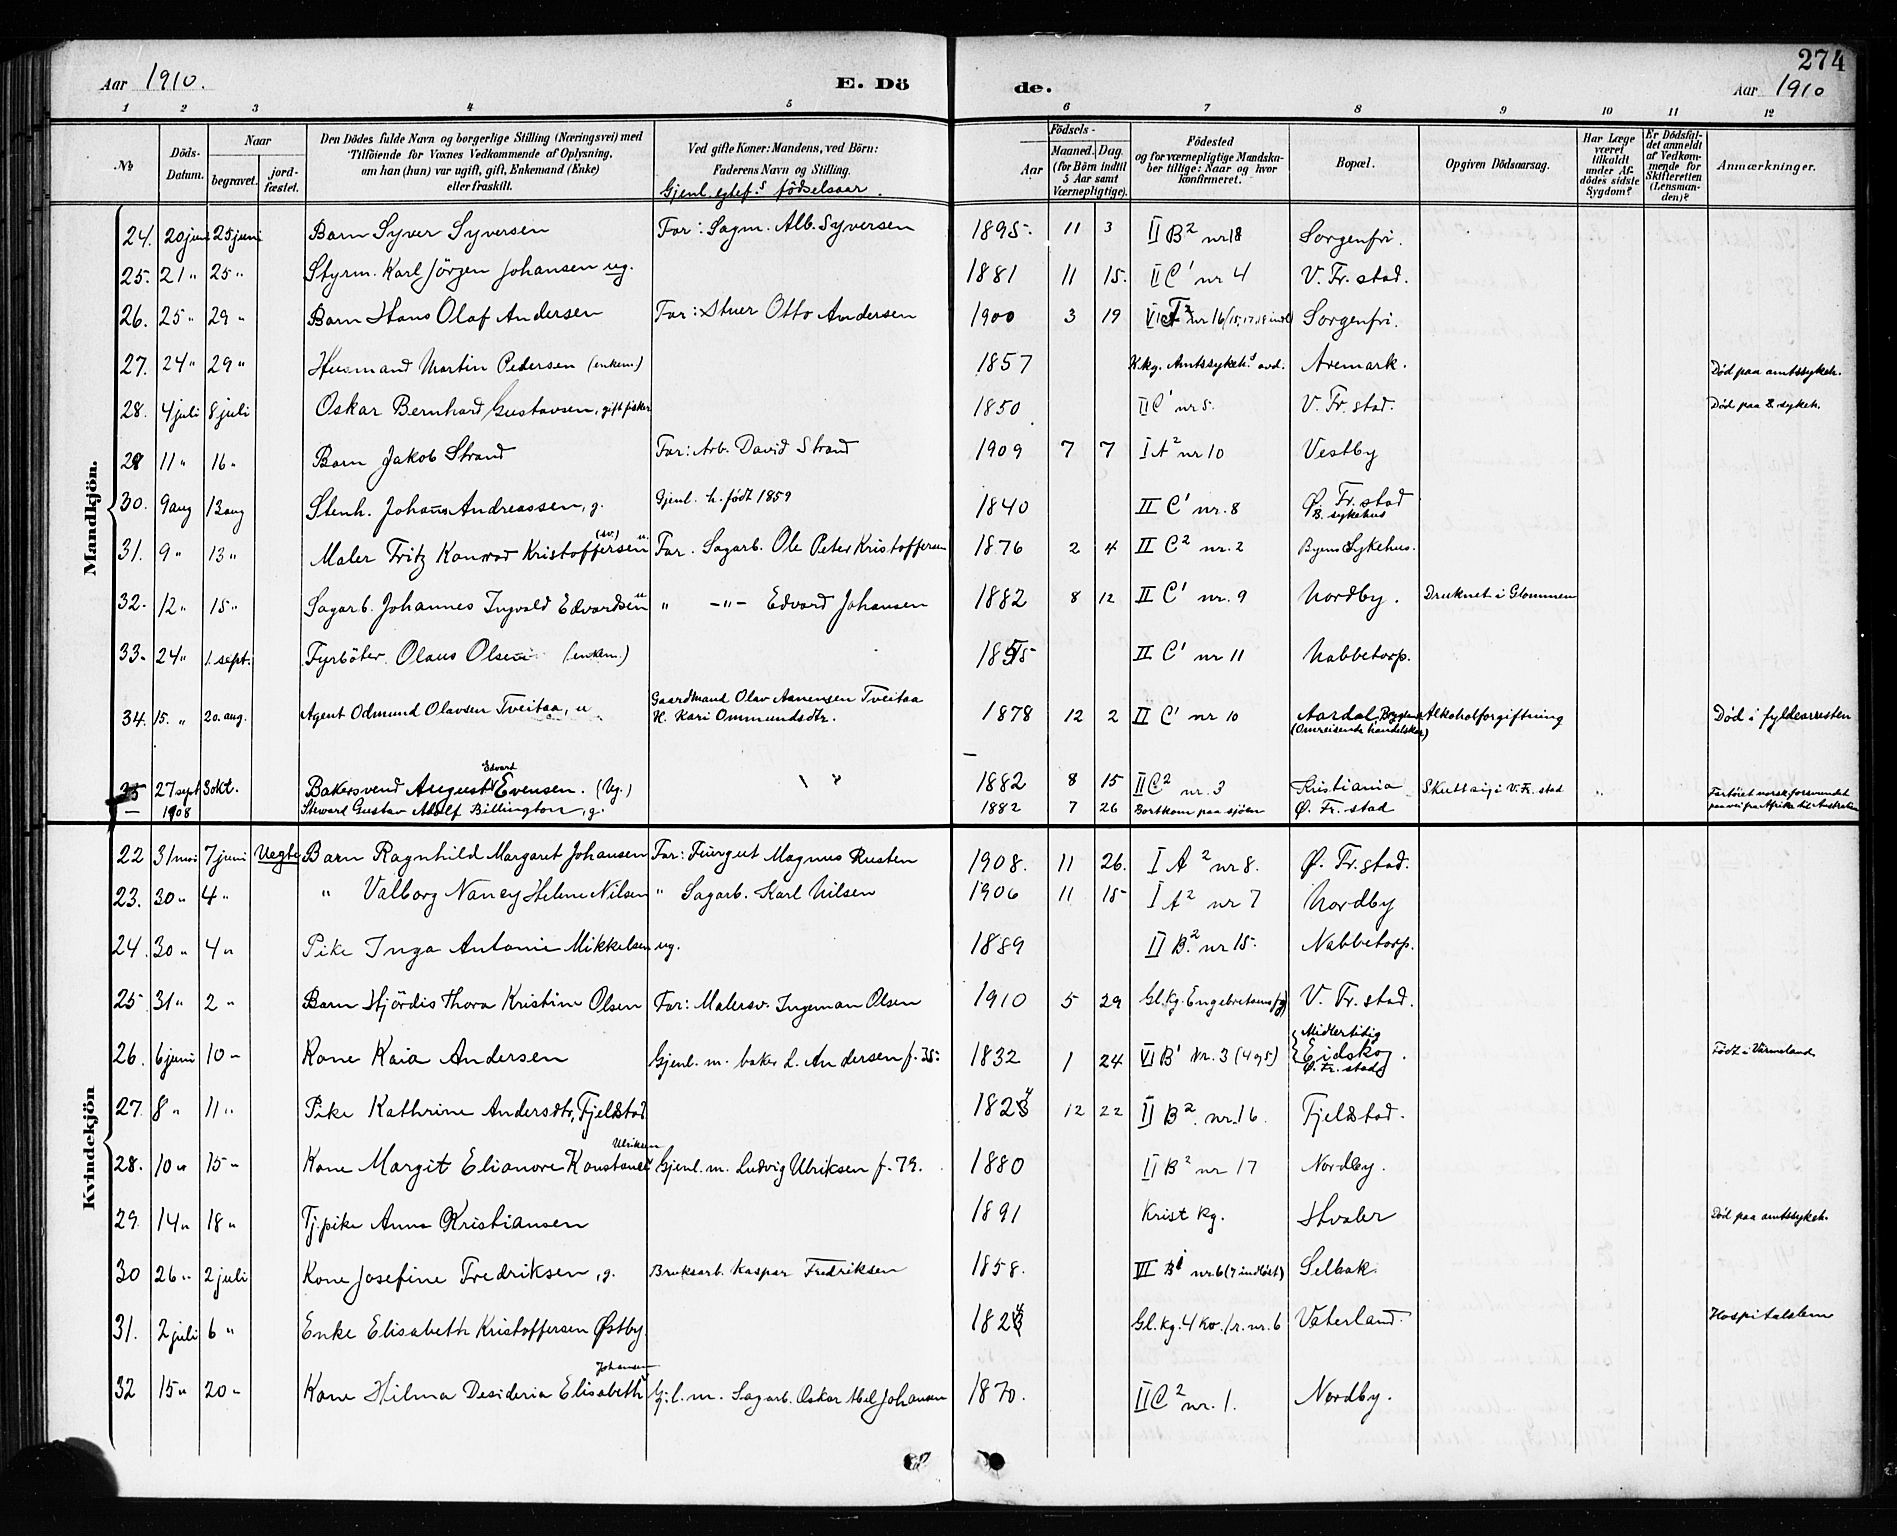 274
Aar 1910. E. Dö de. Aar 1910
1 2 3 4 5 6 7 8 9 10 11 12
No Döds-Datum. Naar begravet. jord-fæstet. Den Dödes fulde Navn og borgerlige Stilling (Næringsvei) med Tilföiende for Voxnes Vedkommende af Oplysning, om han (hun) var ugift, gift, Enkemand (Enke) eller fraskilt. Ved gifte Koner: Mandens, ved Börn: Faderens Navn og Stilling. Gjenl. egtef.s födselsaar. Födsels- Aar Maaned. Dag. (for Börn indtil 5 Aar samt Værnepligtige). Födested og for værnepligtige Mandskaber tillige: Naar og hvor konfirmeret. Bopæl. Opgiven Dödsaarsag. Har Læge været tilkaldt under Afdödes sidste Sygdom? Er Dödsfaldet anmeldt af Vedkommende for Skifteretten (Lensmanden)? Anmærkninger.
Mandkjön.
24. 20 juni 25 juni Barn Syver Syversen Far: Sagm. Alb. Syversen 1895. 11 3 II B2 nr 18 Sorgenfri.
25. 21 " 25 " Styrm. Karl Jörgen Johansen ug. 1881 11 15. II C1 nr 4 V. Fr. stad.
26. 25 " 29 " Barn Hans Olaf Andersen Far: Stuer Otto Andersen 1900 3 19 nr 16 Sorgenfri.
27. 24 " 29 " Husmand Martin Pedersen (enkem.) 1857 K.kg. Amtssykeh.s avd. Aremark. Död paa amtssykeh.
28. 4 juli 8 juli Oskar Bernhard Gustavsen, gift fisker 1850 II C1 nr 5. V. Fr. stad. Död paa B. sykeh.
29 11 " 16 " Barn Jakob Strand Far: Arb. David Strand 1909 7 7 I A2 nr 10 Vestby
30. 9 aug 13 aug Stenh. Johans Andreassen, g. Gjenl. h. födt 1859 1840 II C1 nr. 8 Ø. Fr. stad B. sykehus
31. 9 " 13 " Maler Fritz Konrad Kristoffersen (sv.) u. Far. Sagarb. Ole Peter Kristoffersen 1876 2 4 II C2 nr. 2 Byens Sykehus.
32. 12 " 15 " Sagarb. Johannes Ingvald Edvardsen u " -"- Edvard Johansen 1882 8 12 II C1 nr. 9 Nordby. Druknet i Glommen
33. 24 " 1. sept. Fyrböter Olaus Olsen (enkm.) 1855 II C1 nr 11 Nabbetorp.
34. 15. " 20. aug. Agent Odmund Olavsen Tveitaa, u Gaardmand Olav Aanensen Tveitaa H. Kari Ommundsdtr. 1878 12 2 II C1 nr 10 Aardal, (Omreisende handelskar) Alkoholforgiftning Död i fyldearresten
35 27 sept 3 okt. Bakersvend August Edvart Evensen. (Ug.) " " 1882 8 15 II C2 nr. 3 Kristiania Skutt sig i V. Fr. stad " Fartöiet norsk, forsvundet
— 1908 Steward Gustav Adolf Billington, g. 1882 7 26 Bortkom paa sjöen Ø. Fr. stad paa vei fra Afrika til Australien
Kvindekjön
22 31 mai 7 juni Uegte Barn Ragnhild Margaret Johansen Far: Magnus Rusten 1908. 11 26. I A2 nr 8. Ø. Fr. stad.
23. 30 " 4 " " Valborg Nancy Helene Nilsen " Sagarb. Karl Nilsen 1906 11 15 I A2 nr 7 Nordby
24. 30 " 4 " Pike Inga Antonie Mikkelsen ug. 1889 II B.2 nr 15. Nabbetorp.
25 31 " 2 " Barn Hjördis Thora Kristine Olsen Far: Malersv. Ingeman Olsen 1910 5 29 Gl. kg. Engebretsens V. Fr. stad.
26. 6 juni 10 " Kone Kaia Andersen Gjenl. m. baker L. Andersen f. 35. 1832 1 24 VI B1 nr. 3 (4 og 5) Midlertidig Eidskog. Ø. Fr. stad Födt i Värmeland
27. 8 " 11 " Pike Kathrine Andersdtr, Fjeldstad 1824 12 22 II B2. nr. 16. Fjeldstad.
28. 10 " 15 " Kone Margit Elianore Konstanse Ulriksen Gjenl. m. Ludvig Ulriksen f. 79. 1880 II B2 nr 17 Nordby.
29. 14 " 18 " Tj.pike Anna Kristiansen 1891 Krist kg. Hvaler Död paa amtssykeh.
30 26 " 2 juli Kone Josefine Fredriksen, g. Bruksarb. Kaspar Fredriksen 1858. VII B1 nr. 6 (7 indløst) Selbak.
31. 2 juli 6 " Enke Elisabeth Kristoffersen Østby. 1824 Gl. kg. 4 kv. 1 r. nr. 6 Vaterland. Hospitalslem
32 15 " 20 " Kone Hilma Desideria Elisabeth Johansen Gj.l. m. Sagarb. Oskar Abel Johansen 1870. II C2 nr. 1. Nordby.